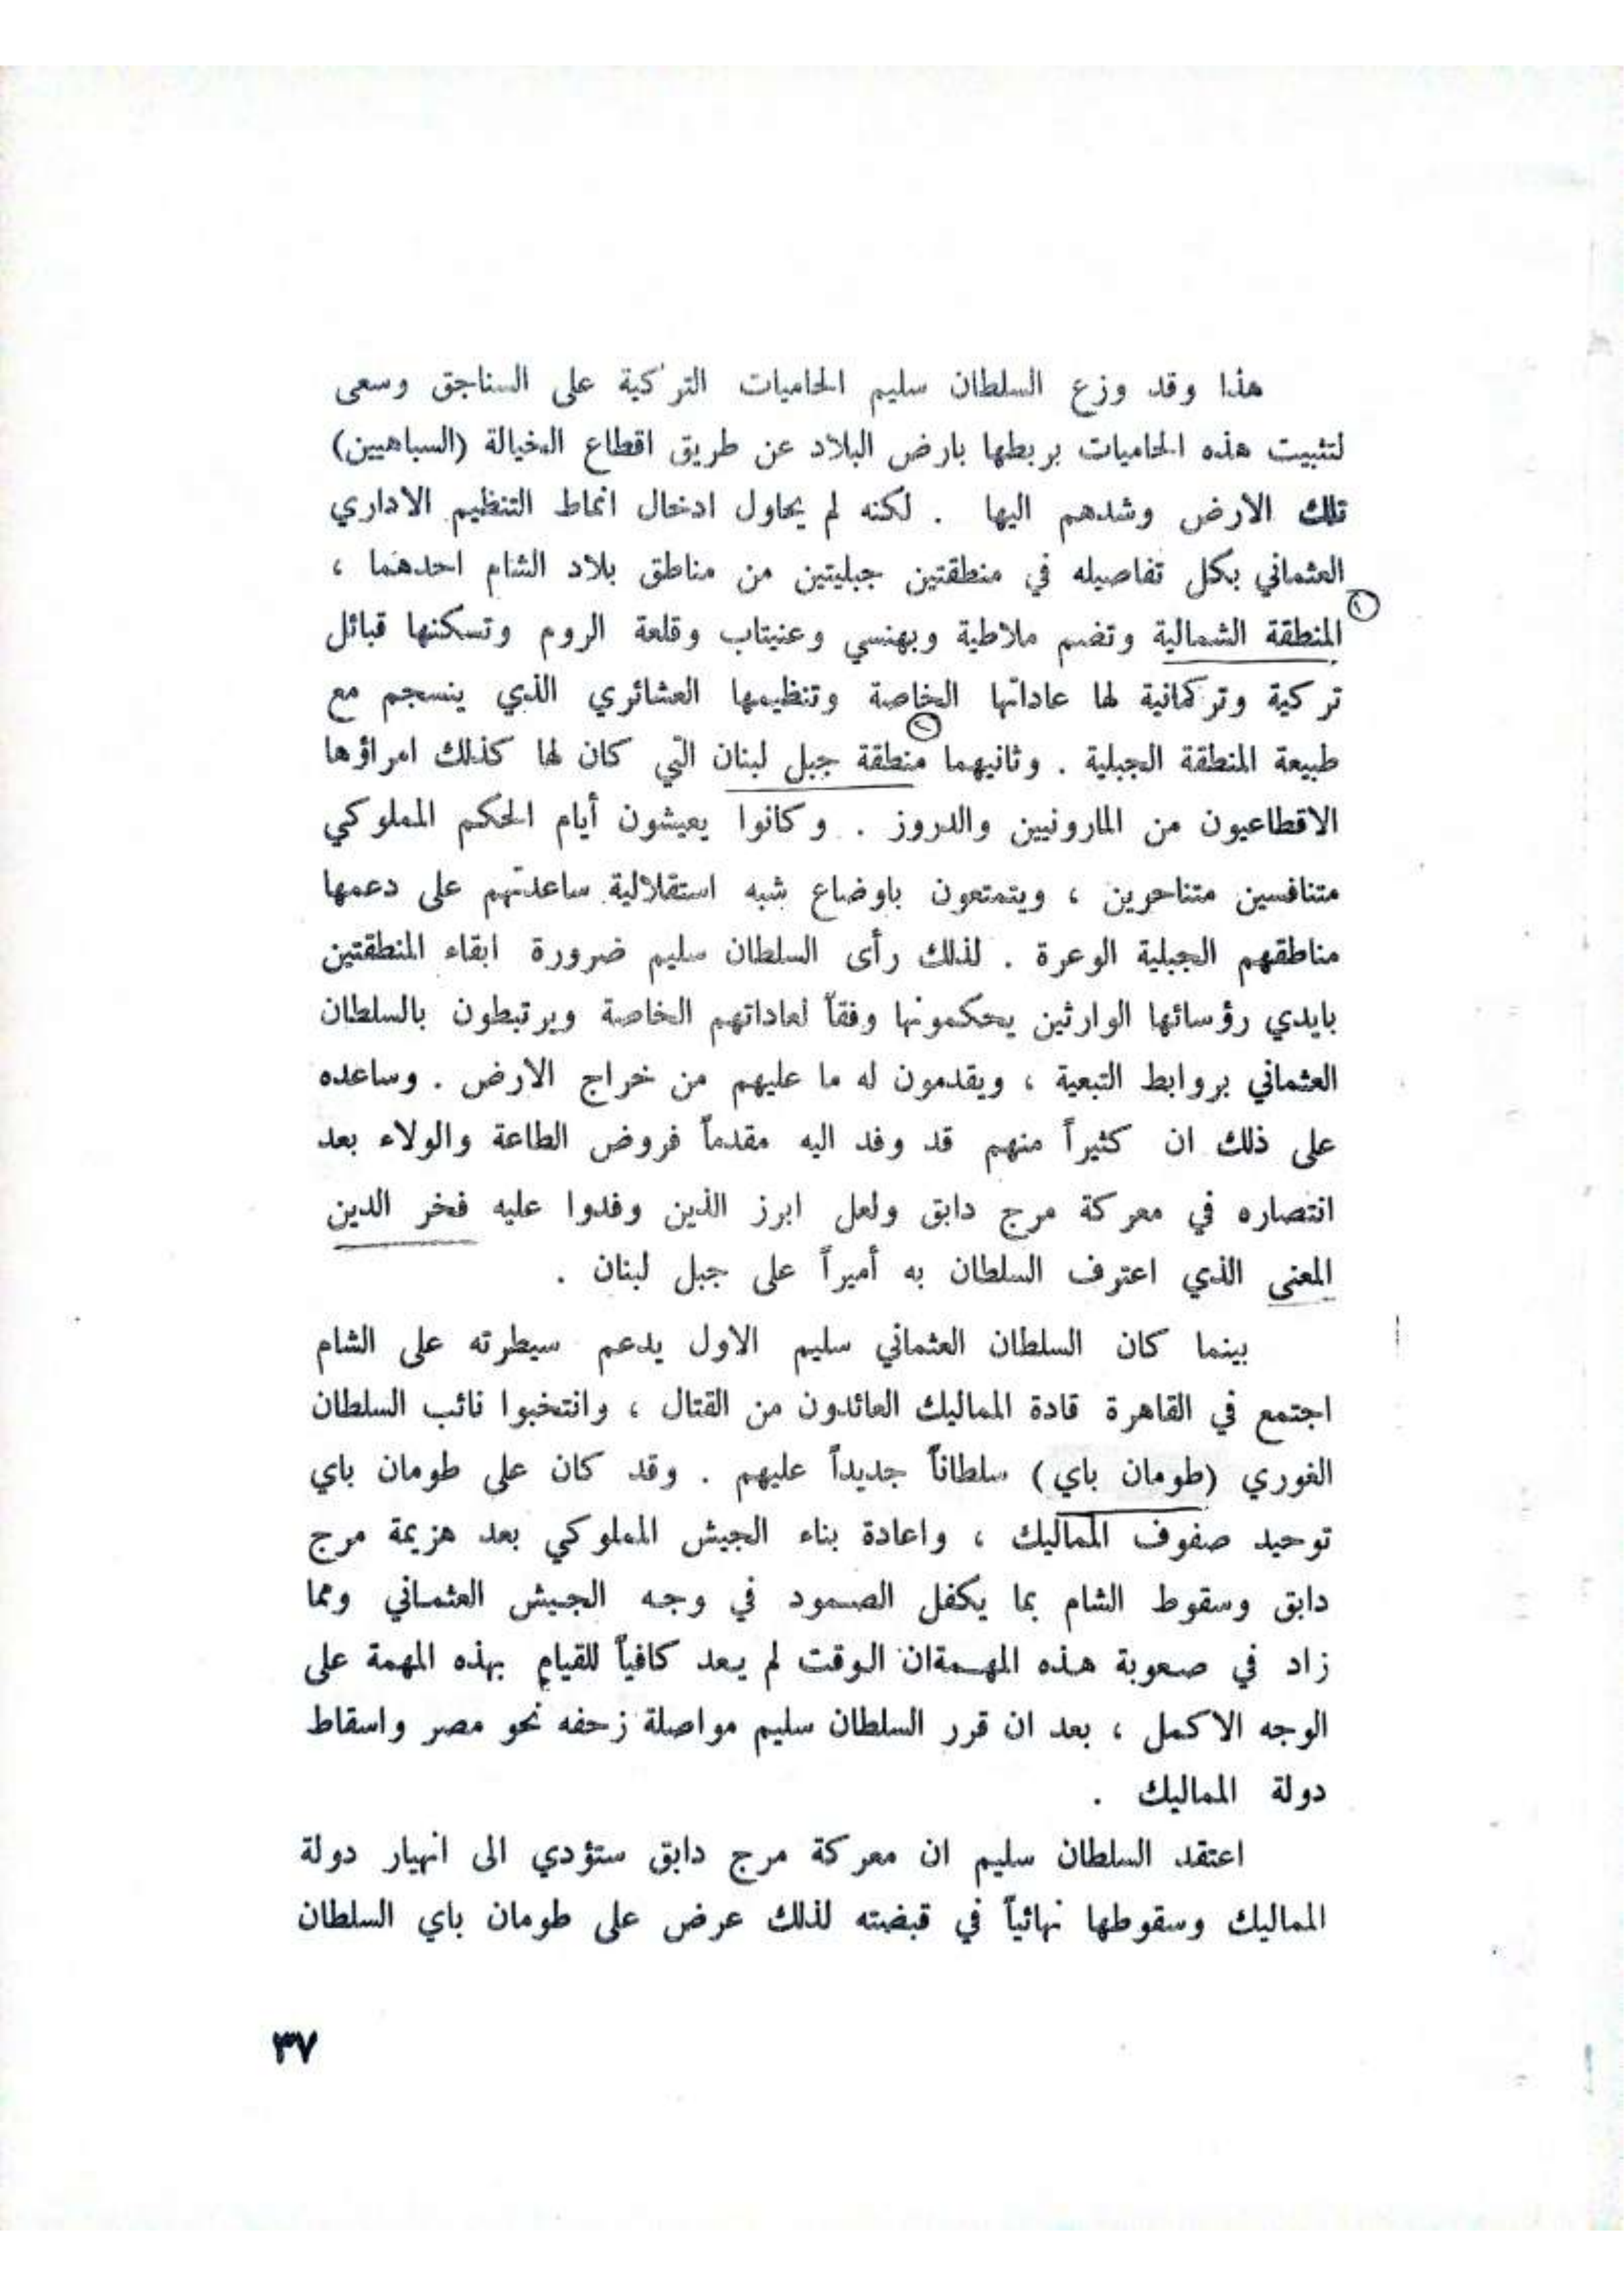 هذا وقد وزع السلطان سليم الحاميات التركية على السناجق وسعى
لتثبيت هذه الحاميات بربطها بارض البلاد عن طريق اقطاع الخيالة (السباهيين)
تلك الارض وشدهم اليها . لكنه لم يحاول ادخال انماط التنظيم الاداري
العثماني بكل تفاصيله في منطقتين جبليتين من مناطق بلاد الشام احدهما ،
١
المنطقة الشمالية وتضم ملاطية وبهنسي وعنيتاب وقلعة الروم وتسكنها قبائل
تركية وتركمانية لها عاداتها الخاصة وتنظيمها العشائري الذي ينسجم مع
٢
طبيعة المنطقة الجبلية . وثانيهما منطقة جبل لبنان التي كان لها كذلك امراؤها
الاقطاعيون من المارونيين والدروز . وكانوا يعيشون أيام الحكم المملوكي
متنافسين متناحرين ، ويتمتعون باوضاع شبه استقلالية ساعدتهم على دعمها
مناطقهم الجبلية الوعرة . لذلك رأى السلطان سليم ضرورة ابقاء المنطقتين
بايدي رؤسائها الوارثين يحكمونها وفقاً لعاداتهم الخاصة ويرتبطون بالسلطان
العثماني بروابط التبعية ، ويقدمون له ما عليهم من خراج الارض . وساعده
على ذلك ان كثيراً منهم قد وفد اليه مقدماً فروض الطاعة والولاء بعد
انتصاره في معركة مرج دابق ولعل ابرز الذين وفدوا عليه فخر الدين
المعنى الذي اعترف السلطان به أميراً على جبل لبنان .
بينما كان السلطان العثماني سليم الاول يدعم سيطرته على الشام
اجتمع في القاهرة قادة المماليك العائدون من القتال ، وانتخبوا نائب السلطان
الغوري (طومان باي) سلطاناً جديداً عليهم . وقد كان على طومان باي
توحيد صفوف المماليك ، واعادة بناء الجيش المملوكي بعد هزيمة مرج
دابق وسقوط الشام بما يكفل الصمود في وجه الجيش العثماني ومما
زاد في صعوبة هذه المهمةان الوقت لم يعد كافياً للقيام بهذه المهمة على
الوجه الاكمل ، بعد ان قرر السلطان سليم مواصلة زحفه نحو مصر واسقاط
دولة المماليك .
اعتقد السلطان سليم ان معركة مرج دابق ستؤدي الى انهيار دولة
المماليك وسقوطها نهائياً في قبضته لذلك عرض على طومان باي السلطان
٣٧